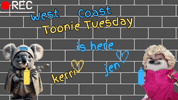 REC
West Coast
Toonie Tuesday
is here
kerri
jen